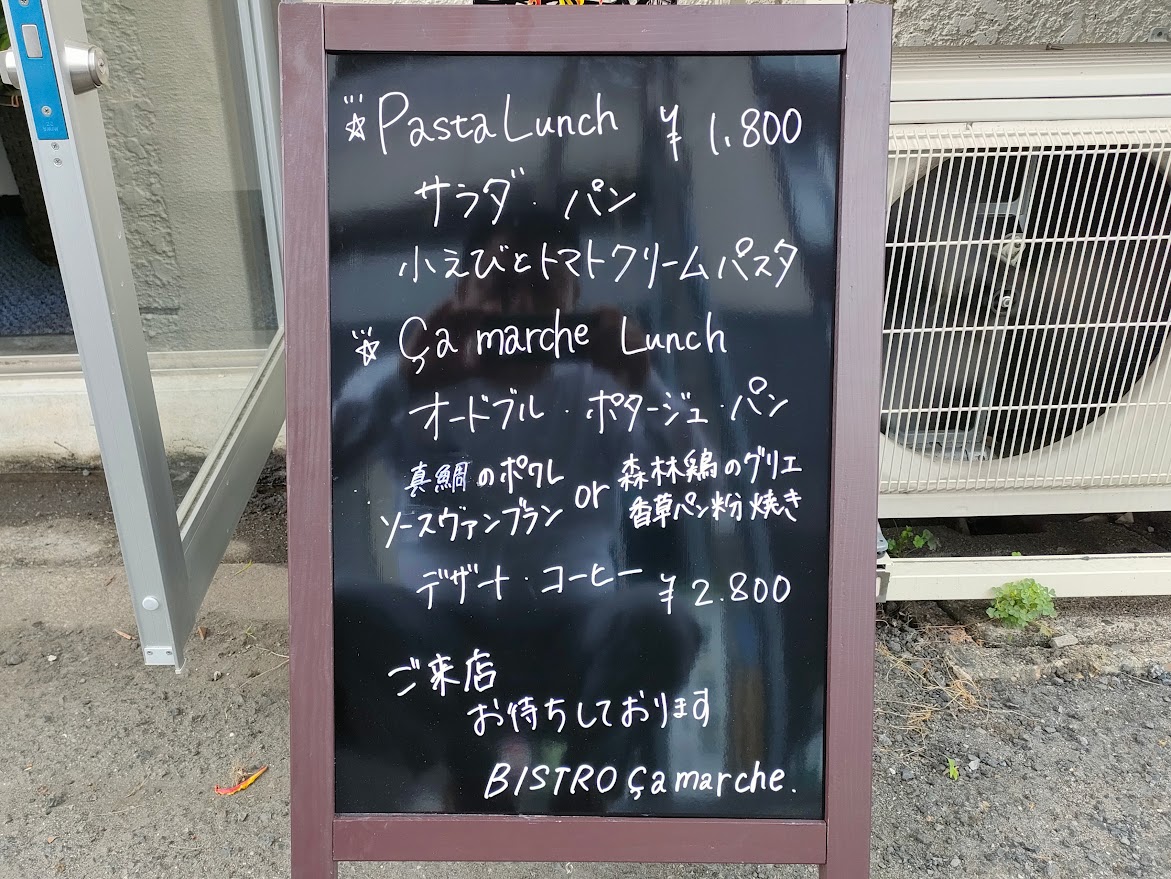 ☆Pasta Lunch ¥1,800
サラダ・パン
小えびとトマトクリームパスタ
☆Ça marche Lunch
オードブル・ポタージュ・パン
真鯛のポワレ
ソースヴァンブラン
or
森林鶏のグリエ
香草パン粉焼き
デザート・コーヒー ¥2.800
ご来店
お待ちしております
BISTRO Ça marche.